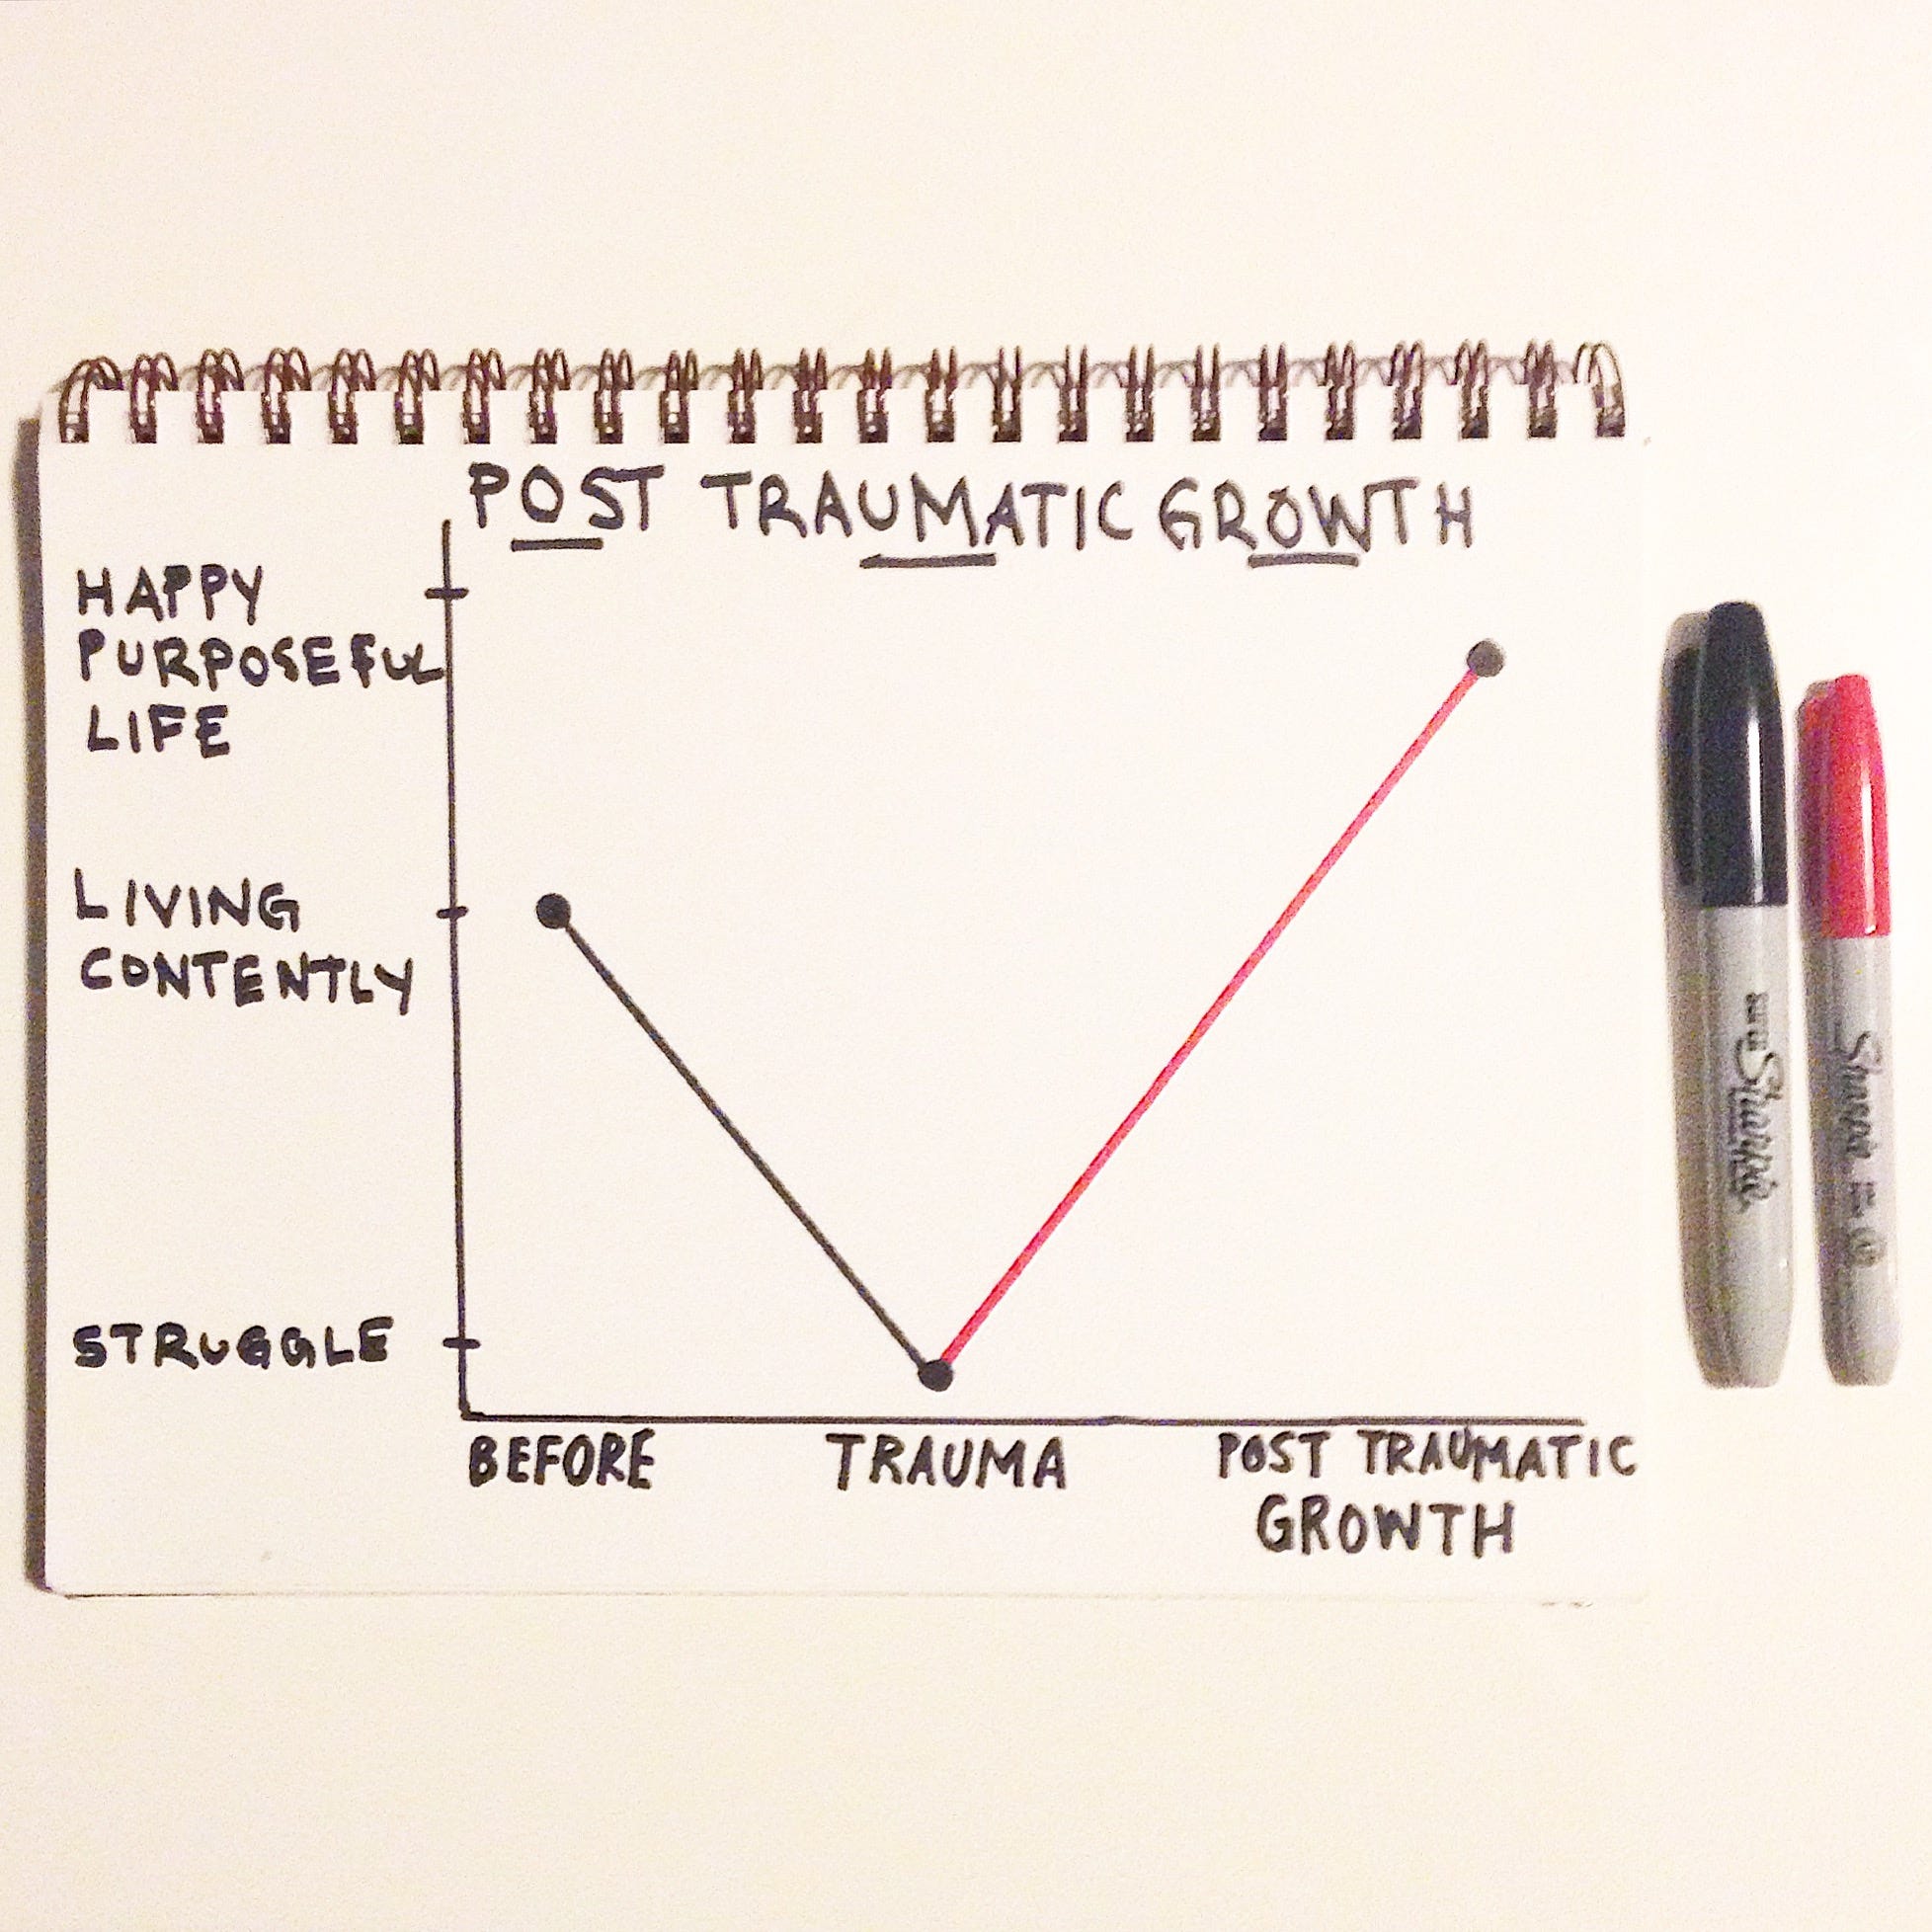 POST TRAUMATIC GROWTH
HAPPY
PURPOSEFUL
LIFE
LIVING
CONTENTLY
STRUGGLE
BEFORE
TRAUMA
POST TRAUMATIC
GROWTH
Sharpie
Sharpie